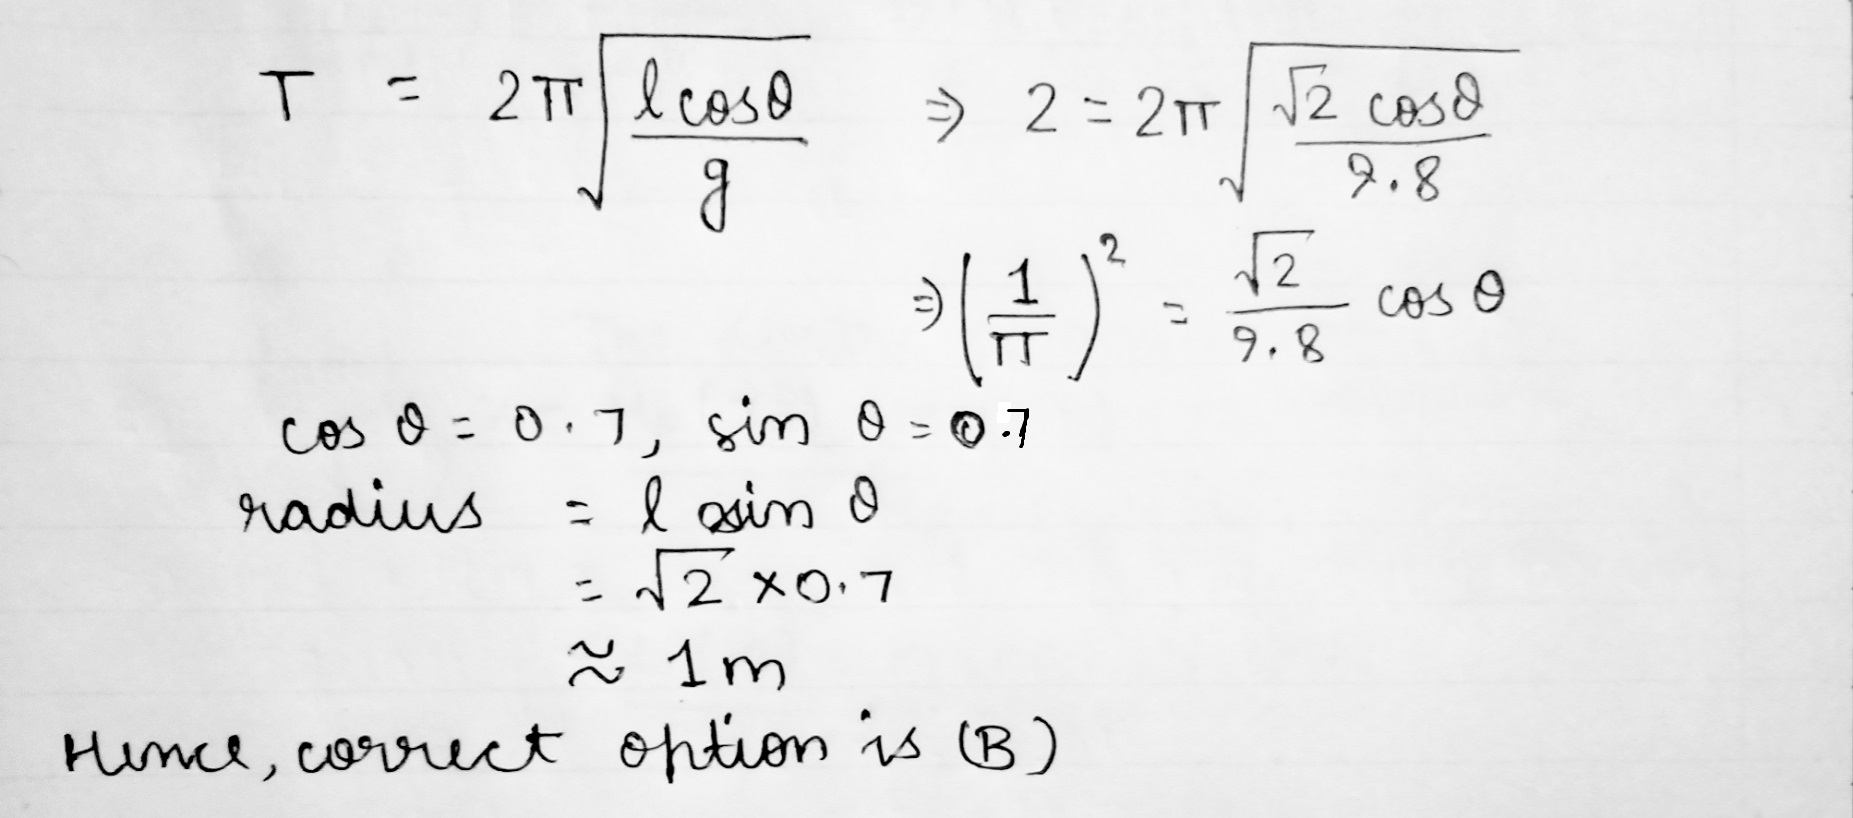 T = 2π√(l cosθ / g) ⇒ 2 = 2π√(√2 cosθ / 9.8)
⇒ (1/π)² = √2/9.8 cos θ
cos θ = 0.7, sin θ = 0.7
radius = l sin θ
= √2 × 0.7
≈ 1m
Hence, correct option is (B)